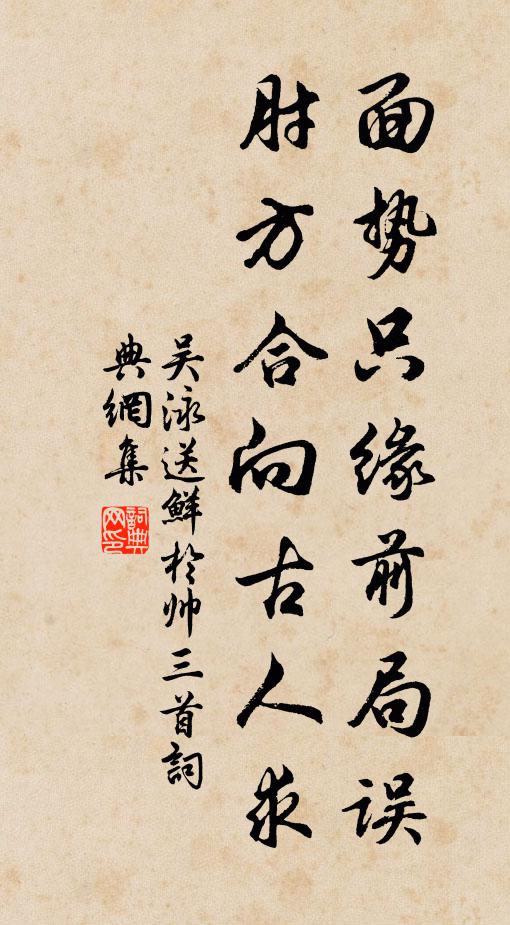 面势只缘前局误
肘方合向古人求
吴泳送鲜于帅三首词
典网集
词典
网印